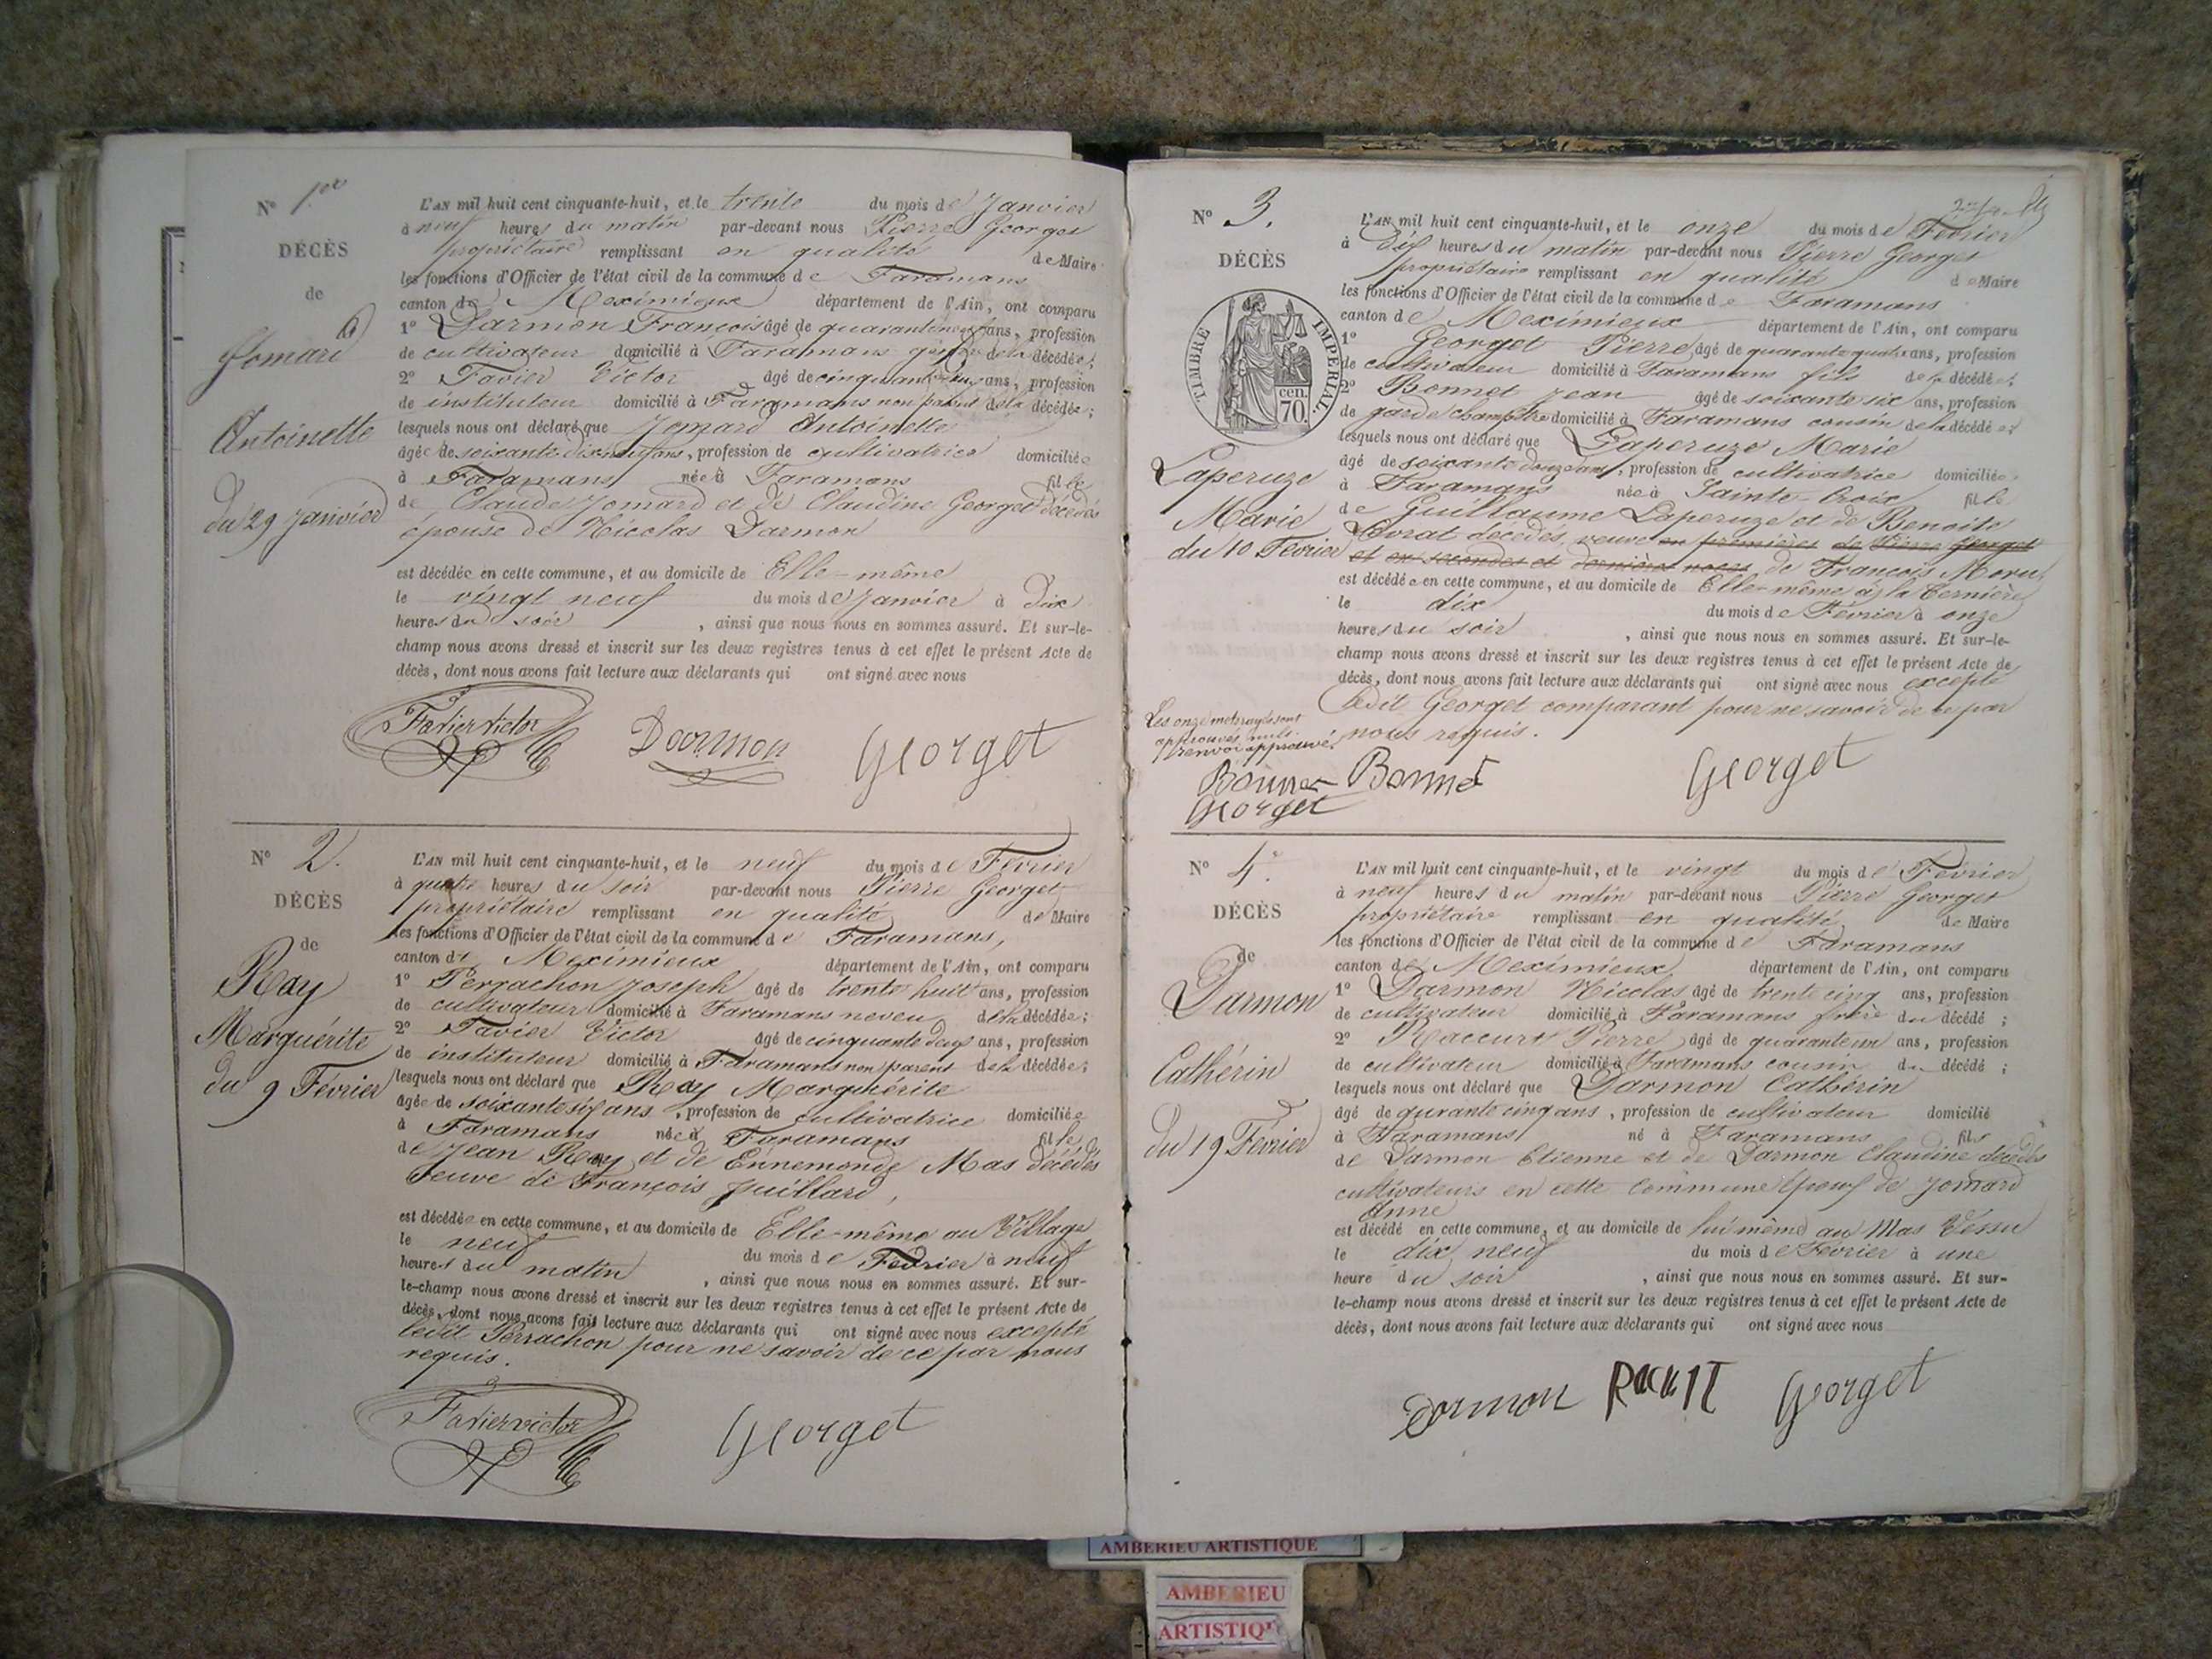 N° 1.er
DÉCÈS
de
Jomard
Antoinette
du 29 Janvier
L'AN mil huit cent cinquante-huit, et le trente du mois de Janvier
à neuf heures du matin par-devant nous Pierre Georget
propriétaire remplissant en qualité de Maire
les fonctions d'Officier de l'état civil de la commune de Faramans
canton de Meximieux département de l'Ain, ont comparu
1° Darmon François âgé de quarante neuf ans, profession
de cultivateur domicilié à Faramans gendre de la décédée;
2° Favier Victor âgé de cinquante deux ans, profession
de instituteur domicilié à Faramans non parent de la décédée;
lesquels nous ont déclaré que Jomard Antoinette
âgée de soixante dix neuf ans, profession de cultivatrice domiciliée
à Faramans née à Faramans fille
de Claude Jomard et de Claudine Georget décédés
épouse de Nicolas Darmon
est décédée en cette commune, et au domicile de Elle-même
le vingt neuf du mois de Janvier à dix
heures du soir, ainsi que nous nous en sommes assuré. Et sur-le-
champ nous avons dressé et inscrit sur les deux registres tenus à cet effet le présent Acte de
décès, dont nous avons fait lecture aux déclarants qui ont signé avec nous
Favier victor Darmon Georget
N° 2.
DÉCÈS
de
Ray
Marguérite
du 9 Février
L'AN mil huit cent cinquante-huit, et le neuf du mois de Février
à quatre heures du soir par-devant nous Pierre Georget
propriétaire remplissant en qualité de Maire
les fonctions d'Officier de l'état civil de la commune de Faramans,
canton de Meximieux département de l'Ain, ont comparu
1° Perrachon Joseph âgé de trente huit ans, profession
de cultivateur domicilié à Faramans neveu de la décédée;
2° Favier Victor âgé de cinquante deux ans, profession
de instituteur domicilié à Faramans non parent de la décédée;
lesquels nous ont déclaré que Ray Marguérite
âgée de soixante six ans, profession de cultivatrice domiciliée
à Faramans née à Faramans fille
de Jean Ray et de Ennemonde Mas décédés
veuve de François Juillard,
est décédée en cette commune, et au domicile de Elle-même au Village
le neuf du mois de Février à neuf
heures du matin, ainsi que nous nous en sommes assuré. Et sur-
le-champ nous avons dressé et inscrit sur les deux registres tenus à cet effet le présent Acte de
décès, dont nous avons fait lecture aux déclarants qui ont signé avec nous excepté
ledit Perrachon pour ne savoir de ce par nous
requis.
Favier victor Georget
N° 3.
DÉCÈS
TIMBRE IMPERIAL.
cen.
70.
Laperuze
Marie
du 10 Février
L'AN mil huit cent cinquante-huit, et le onze du mois de Février
à dix heures du matin par-devant nous Pierre Georget
propriétaire remplissant en qualité de Maire
les fonctions d'Officier de l'état civil de la commune de Faramans
canton de Meximieux département de l'Ain, ont comparu
1° Georget Pierre âgé de quarante quatre ans, profession
de cultivateur domicilié à Faramans fils de la décédée;
2° Bonnet Jean âgé de soixante six ans, profession
de garde champêtre domicilié à Faramans cousin de la décédée;
lesquels nous ont déclaré que Laperuze Marie
âgé de soixante douze ans, profession de cultivatrice domiciliée
à Faramans née à Sainte-Croix fille
de Guillaume Laperuze et de Benoite
décédés, veuve en premières de Pierre Georget
et en secondes et dernières noces de François
est décédée en cette commune, et au domicile de Elle-même à la
le dix du mois de Février à onze
heures du soir, ainsi que nous nous en sommes assuré. Et sur-le-
champ nous avons dressé et inscrit sur les deux registres tenus à cet effet le présent Acte de
décès, dont nous avons fait lecture aux déclarants qui ont signé avec nous excepté
ledit Georget comparant pour ne savoir de ce par
nous requis.
Les onze mots rayés sont
approuvés nuls.
renvoi approuvé.
Bonnet Georget
Georget
N° 4.
DÉCÈS
de
Darmon
Cathérin
du 19 Février
L'AN mil huit cent cinquante-huit, et le vingt du mois de Février
à neuf heures du matin par-devant nous Pierre Georget
propriétaire remplissant en qualité de Maire
les fonctions d'Officier de l'état civil de la commune de Faramans
canton de Meximieux département de l'Ain, ont comparu
1° Darmon Nicolas âgé de trente cinq ans, profession
de cultivateur domicilié à Faramans frère du décédé;
2° Raccurt Pierre âgé de quarante un ans, profession
de cultivateur domicilié à Faramans cousin du décédé;
lesquels nous ont déclaré que Darmon Cathérin
âgé de qurante cinq ans, profession de cultivateur domicilié
à Faramans né à Faramans fils
de Darmon Etienne et de Darmon Claudine décédés
cultivateurs en cette commune époux de Jomard
Anne
est décédé en cette commune, et au domicile de lui même au Mas
le dix neuf du mois de Février à une
heure du soir, ainsi que nous nous en sommes assuré. Et sur-
le-champ nous avons dressé et inscrit sur les deux registres tenus à cet effet le présent Acte de
décès, dont nous avons fait lecture aux déclarants qui ont signé avec nous
Darmon Georget
AMBERIEU ARTISTIQUE
AMBERIEU
ARTISTIQUE